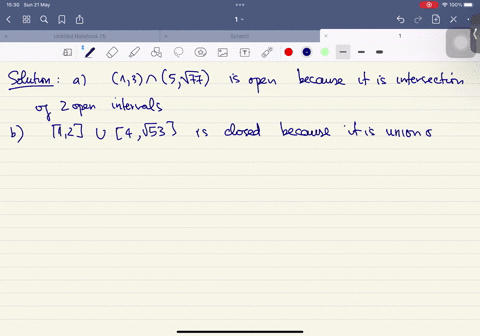 15:30 Sun 21 May
100%
1
Untitled Notebook (1)
1
Solution: a) (1,3) ∩ (5,√77) is open because it is intersection
of 2 open intervals
b) [1,2] ∪ [4,√53] is closed because it is union o